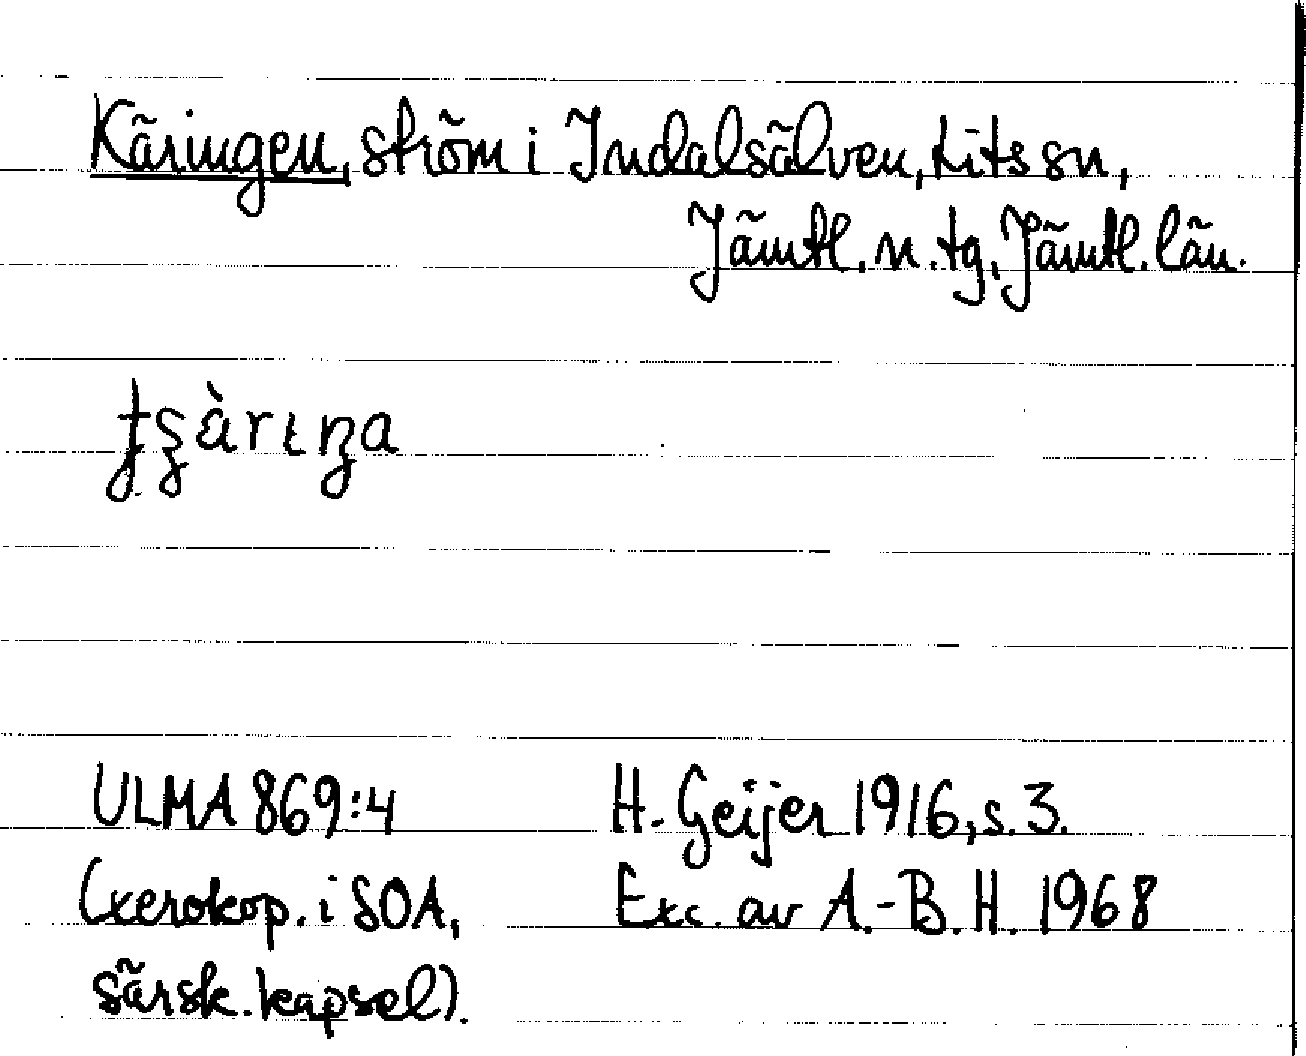 Käringen, ström i Indalsälven, Lits sn,
Jämtl. n. tg, Jämtl. län.
ULMA 869:4
H. Geijer 1916, s. 3.
(xerokop. i SOA,
Exc. av A.-B. H. 1968
särsk. kapsel).